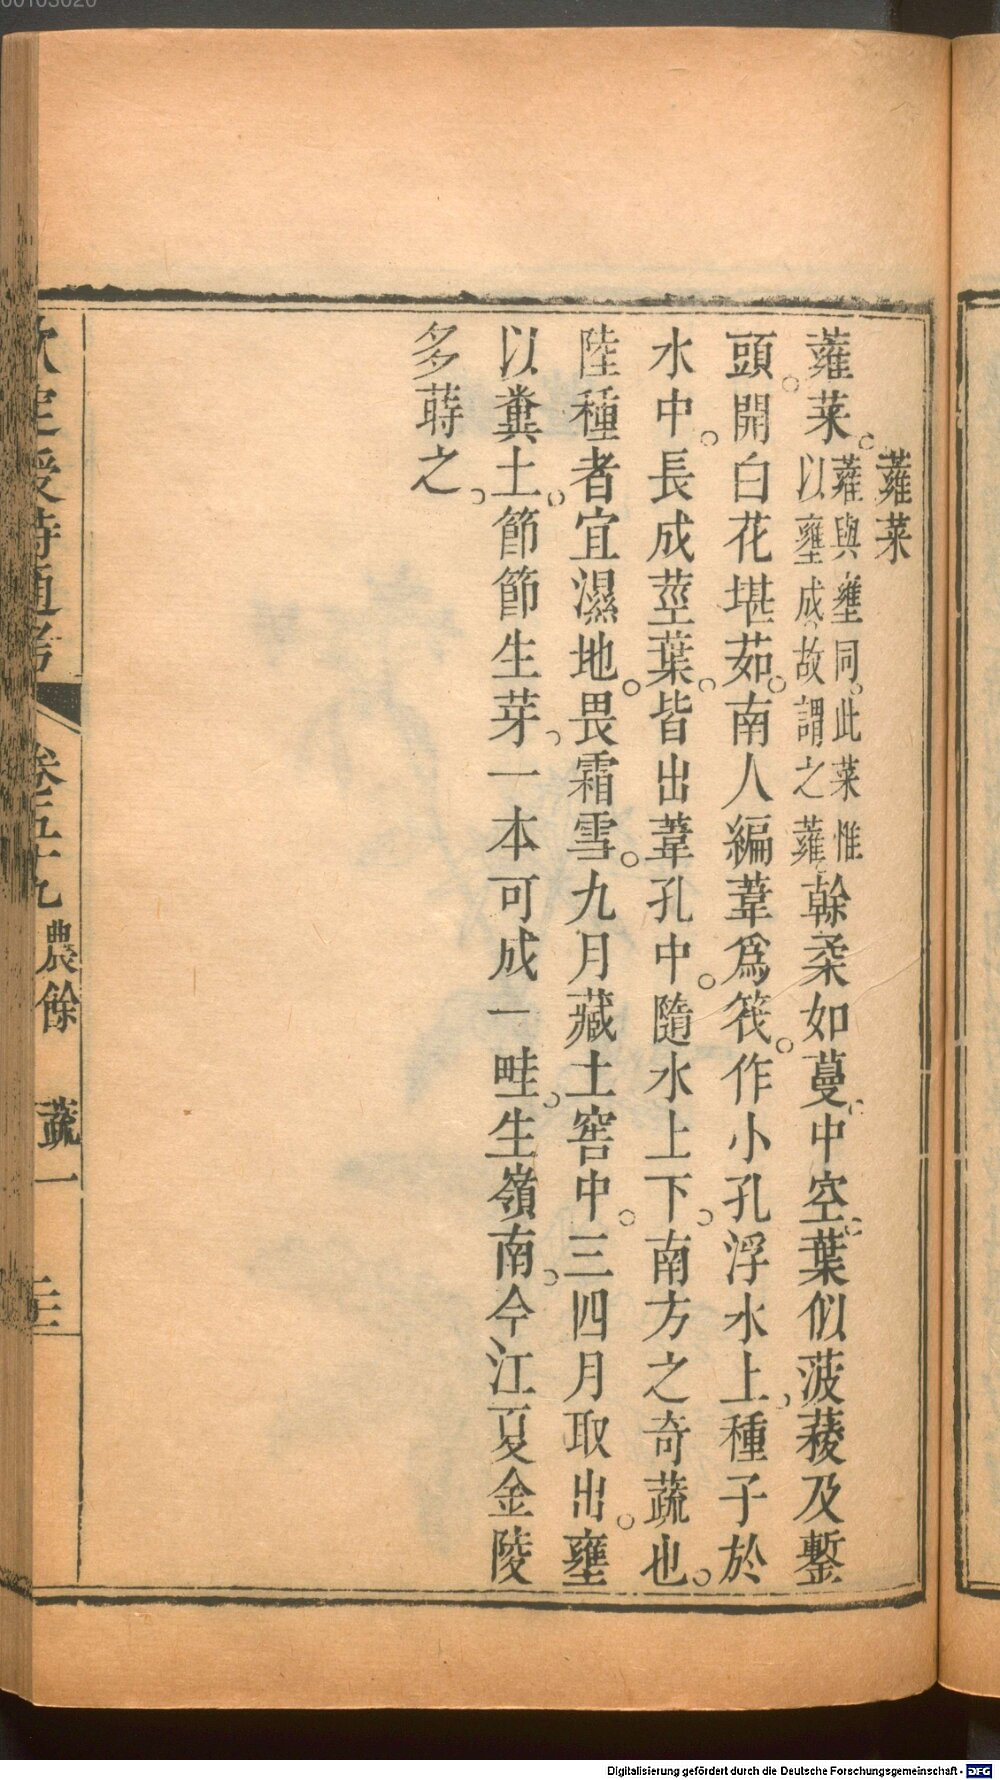 蕹菜
蕹菜。蕹與壅同。此菜惟以壅成。故謂之蕹。幹柔如蔓。中空。葉似菠薐及鏨
頭。開白花堪茹。南人編葦爲筏。作小孔浮水上。種子於
水中。長成莖葉。皆出葦孔中。隨水上下。南方之奇蔬也。
陸種者宜濕地。畏霜雪。九月藏土窖中。三四月取出。壅
以糞土。節節生芽。一本可成一畦。生嶺南。今江夏金陵
多蒔之。
欽定授時通考 卷五十九 農餘 蔬一
00103020
Digitalisierung gefördert durch die Deutsche Forschungsgemeinschaft - DFG